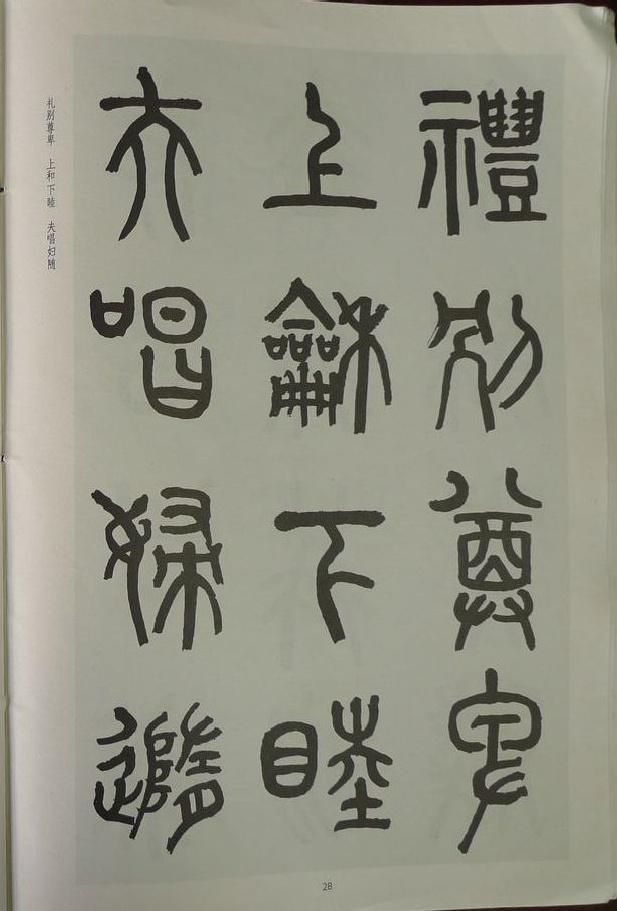 禮別尊卑
上龢下睦
夫唱婦隨
礼别尊卑　上和下睦　夫唱妇随
28